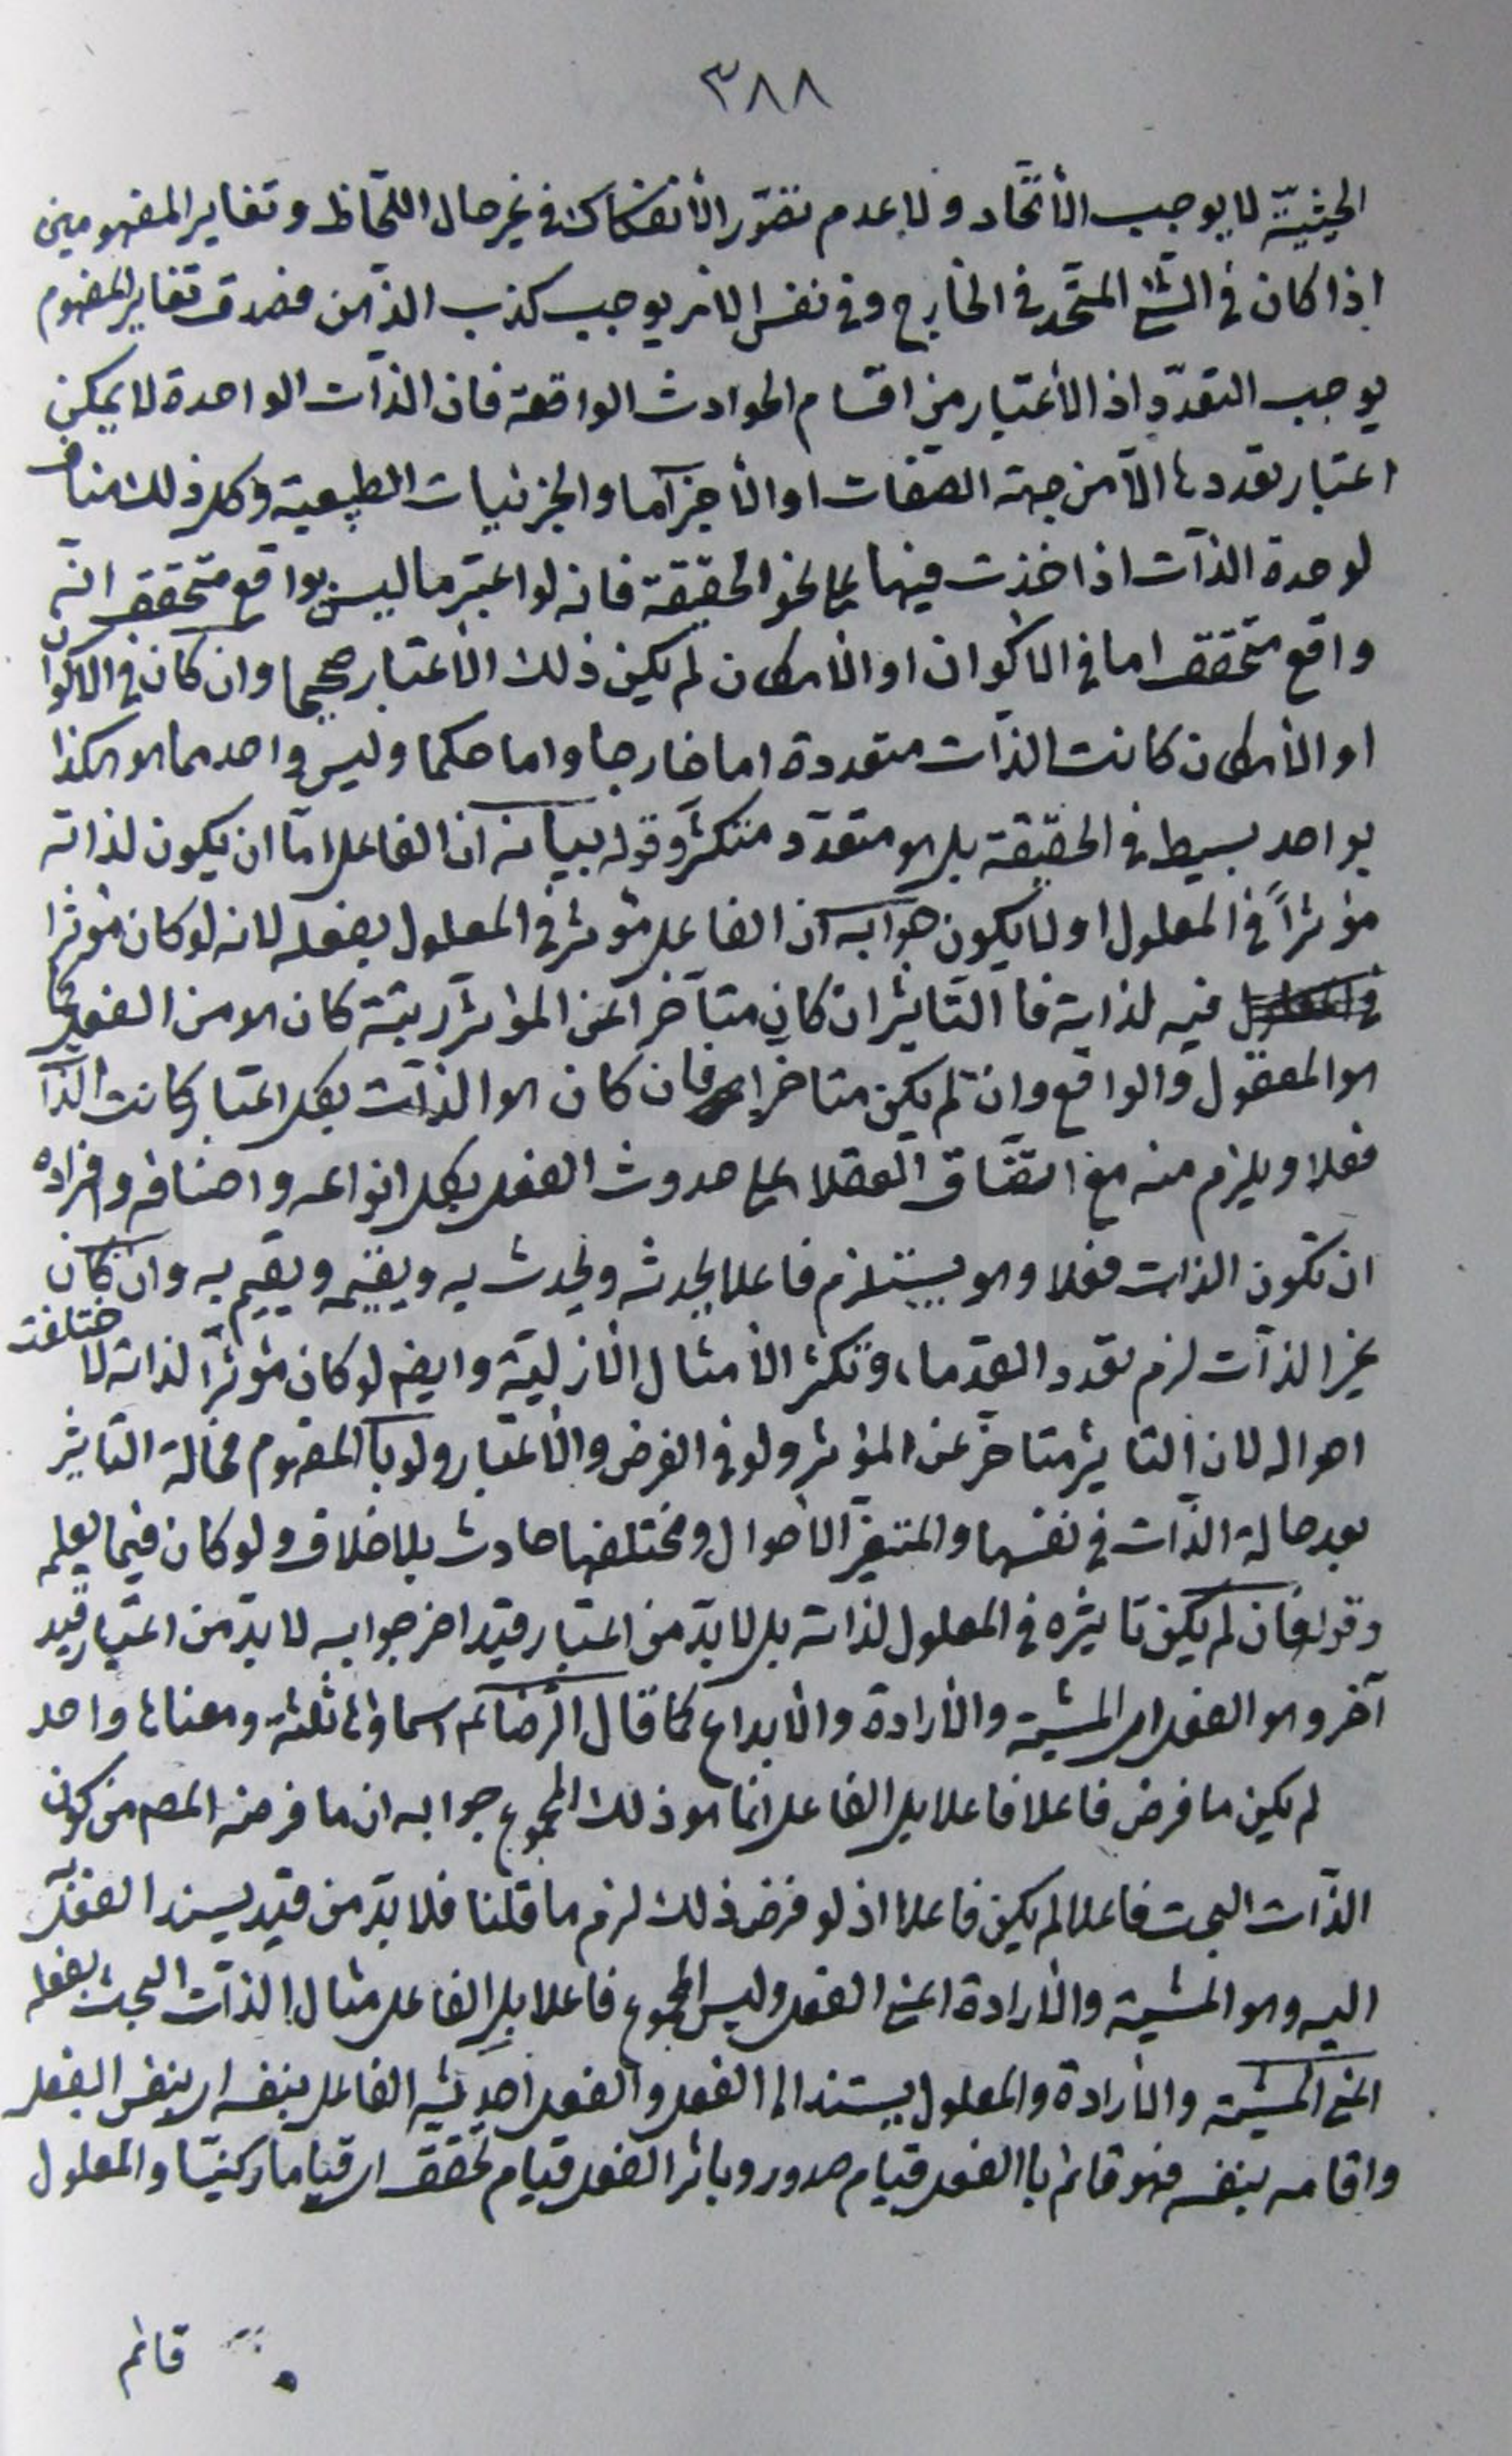 ٣٨٨
الحيثيّة لا يوجب الأتّحاد ولا عدم تصّور الأنفكاك في غير حال اللّحاظ وتغاير المفهومين
اذا كان في الشئ المتّحد في الخارج وفي نفس الامر يوجب كذب الذهن فصدق تغاير المفهوم
يوجب التعدّد اذ الأعتبار من اقسام الحوادث الواقعة فان الذّات الواحدة لا يمكن
اعتبار تعددها الّا من جهة الصفات او الأجزآء او الجزئيات الطبيعية وكل ذلك مناف
لوحدة الذّات اذا اخذت فيها على نحو الحقيقة فانه لو اعتبر ما ليس بواقع متحقق انّه
واقع متحقق اما في الاكوان او الأمكان لم يكن ذلك الأعتبار صحيحا وان كان في الاكوان
او الأمكان كانت الذّات متعددة اما خارجا واما حكما وليس واحد مما هو هكذا
بواحد بسيط في الحقيقة بل هو متعدّد متكثّر وقوله بيانه ان الفاعل امّا ان يكون لذاته
مؤثراً في المعلول او لا يكون جوابه ان الفاعل مؤثر في المعلول بفعله لانه لو كان مؤثرا
فيه لذاته فا التّاثير ان كان متاخرا عن المؤثر رتبة كان هو من الفعل كما
هو المعقول والواقع وان لم يكن متاخرا فان كان هو الذّات بكل اعتبار كانت الذّات
فعلا ويلزم منه مع اتفّاق العقلاء على حدوث الفعل بكل انواعه واصنافه وافراده
ان تكون الذات فعلا وهو يستلزم فاعلا يحدثه ويحدث به ويقيمه ويقيم به وان كان
غير الذّات لزم تعدد القدماء وتكثر الأمثال الأزليّة وايضا لو كان مؤثرا لذاته لاختلفت
احواله لان التاثير متاخر عن المؤثر ولو في الفرض والأعتبار ولو با المفهوم فحالة التاثير
بعد حالة الذّات في نفسها والمتغيّر الأحوال ومختلفها حادث بلا خلاف ولو كان فيما يعلم
وقوله فان لم يكن تاثيره في المعلول لذاته بل لا بدّ من اعتبار قيد اخر جوابه لا بدّ من اعتبار قيد
آخر وهو الفعل اى المشيّة والأرادة والأبداع كما قال الرّضا عم اسماؤها ثلثة ومعناها واحد
لم يكن ما فرض فاعلا فاعلا بل الفاعل انّما هو ذلك المجموع جوابه ان ما فرضه المصم من كون
الذّات البحت فاعلا لم يكن فاعلا اذ لو فرض ذلك لزم ما قلنا فلا بدّ من قيد يسند الفعل
اليه وهو المشيّة والأرادة اعنى الفعل وليس المجموع فاعلا بل الفاعل مثال الذّات البحت بفعله
اعنى المشيّة والأرادة والمعلول يستند الى الفعل والفعل احدثه الفاعل بنفسه اى بنفس الفعل
واقامه بنفسه فهو قائم با الفعل قيام صدور وباثر الفعل قيام تحقق اى قياما ركنيّا والمعلول
قائم